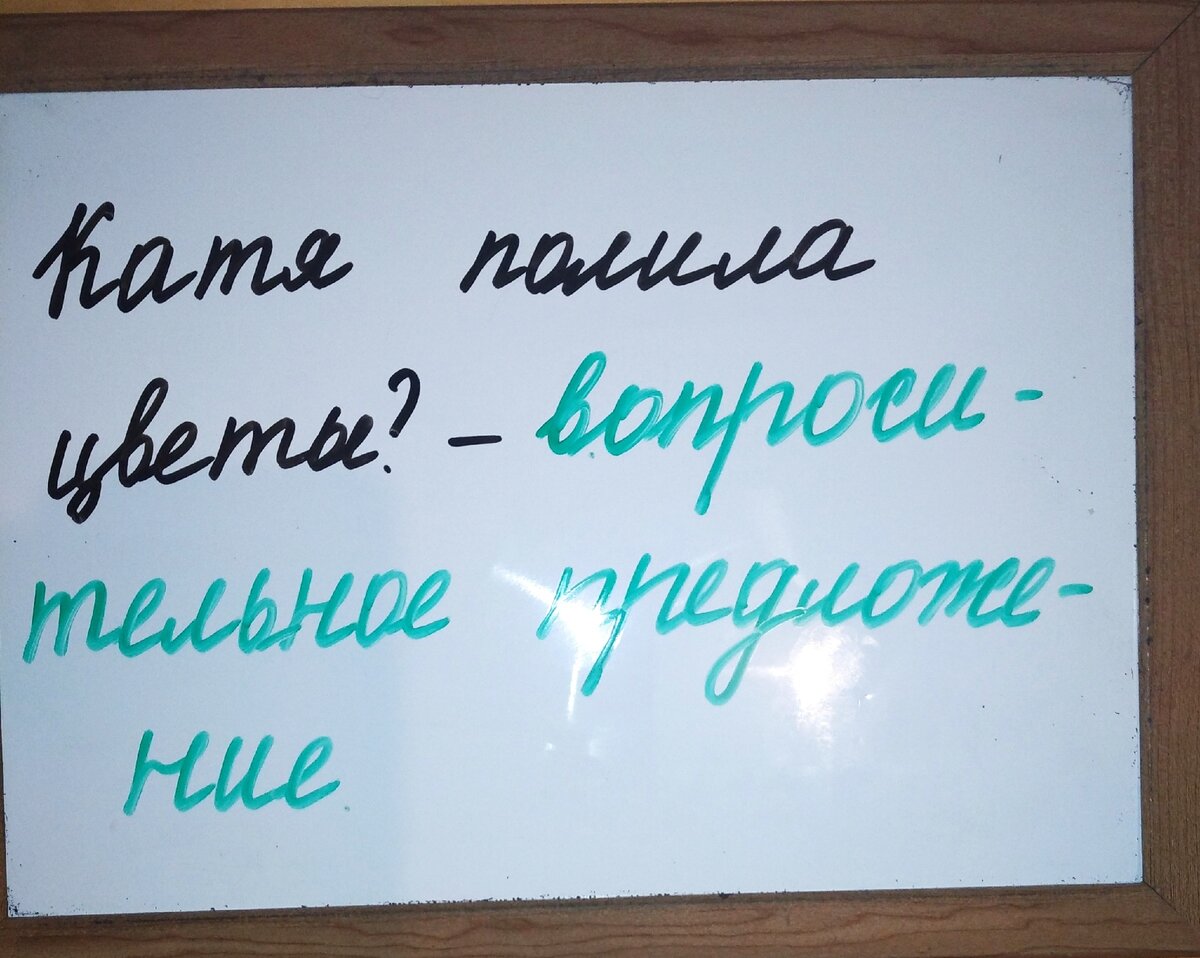 Катя полила
цветы? – вопроси-
тельное предложе-
ние